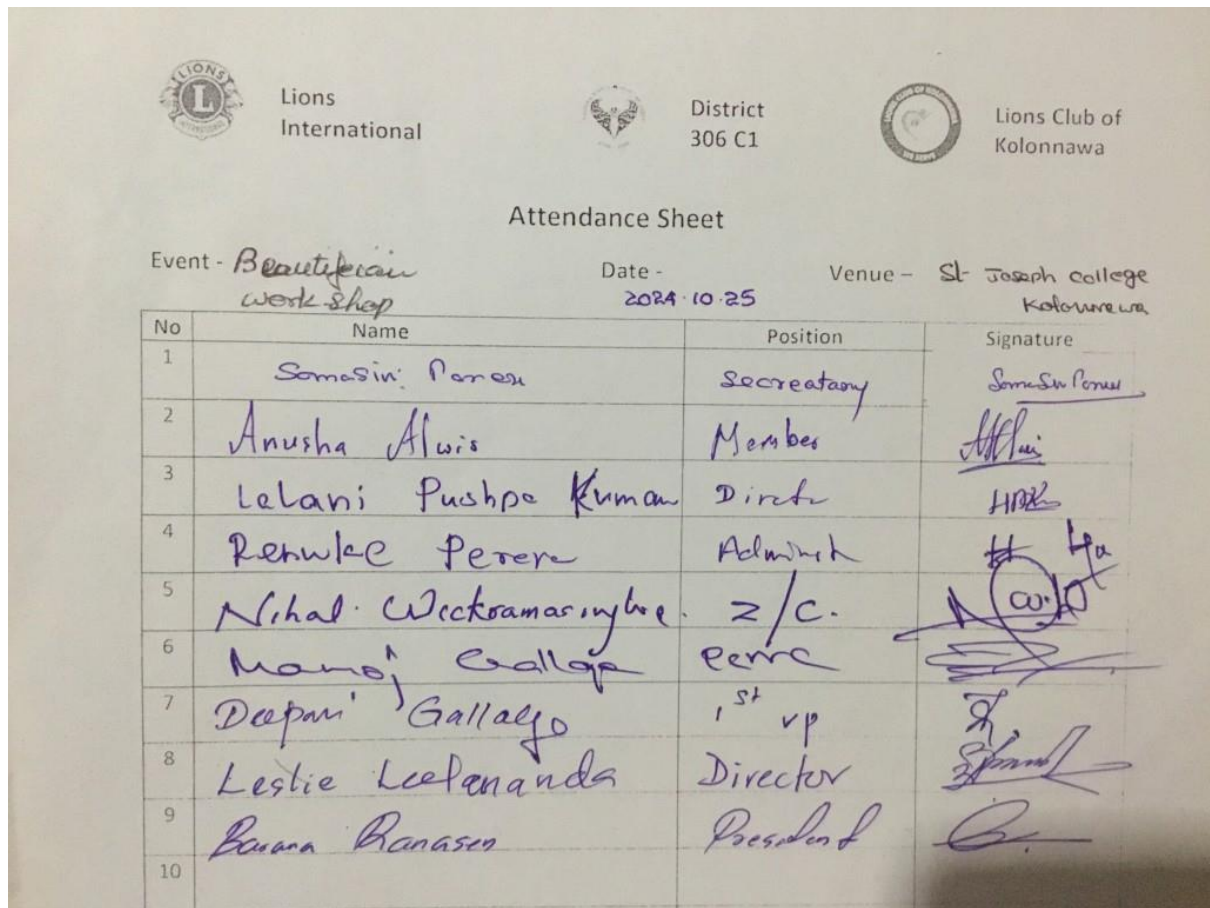 LIONS
L
INTERNATIONAL
Lions
International
District
306 C1
Lions Club of
Kolonnawa
Attendance Sheet
Event - Beautifician
work-shop
Date -
2024.10.25
Venue – St Joseph college
Kolonnawa
No Name Position Signature
1 Somasiri Secreataory
2 Anusha Alwis Member
3 Lelani Pushpa Kumar Director
4 Renuke Perera
5 Nihal. Wickramasinghe. Z/C.
6 Manoj
7 Deepani Gallage 1st VP
8 Leslie Leelananda Director
9 Ranasen President
10